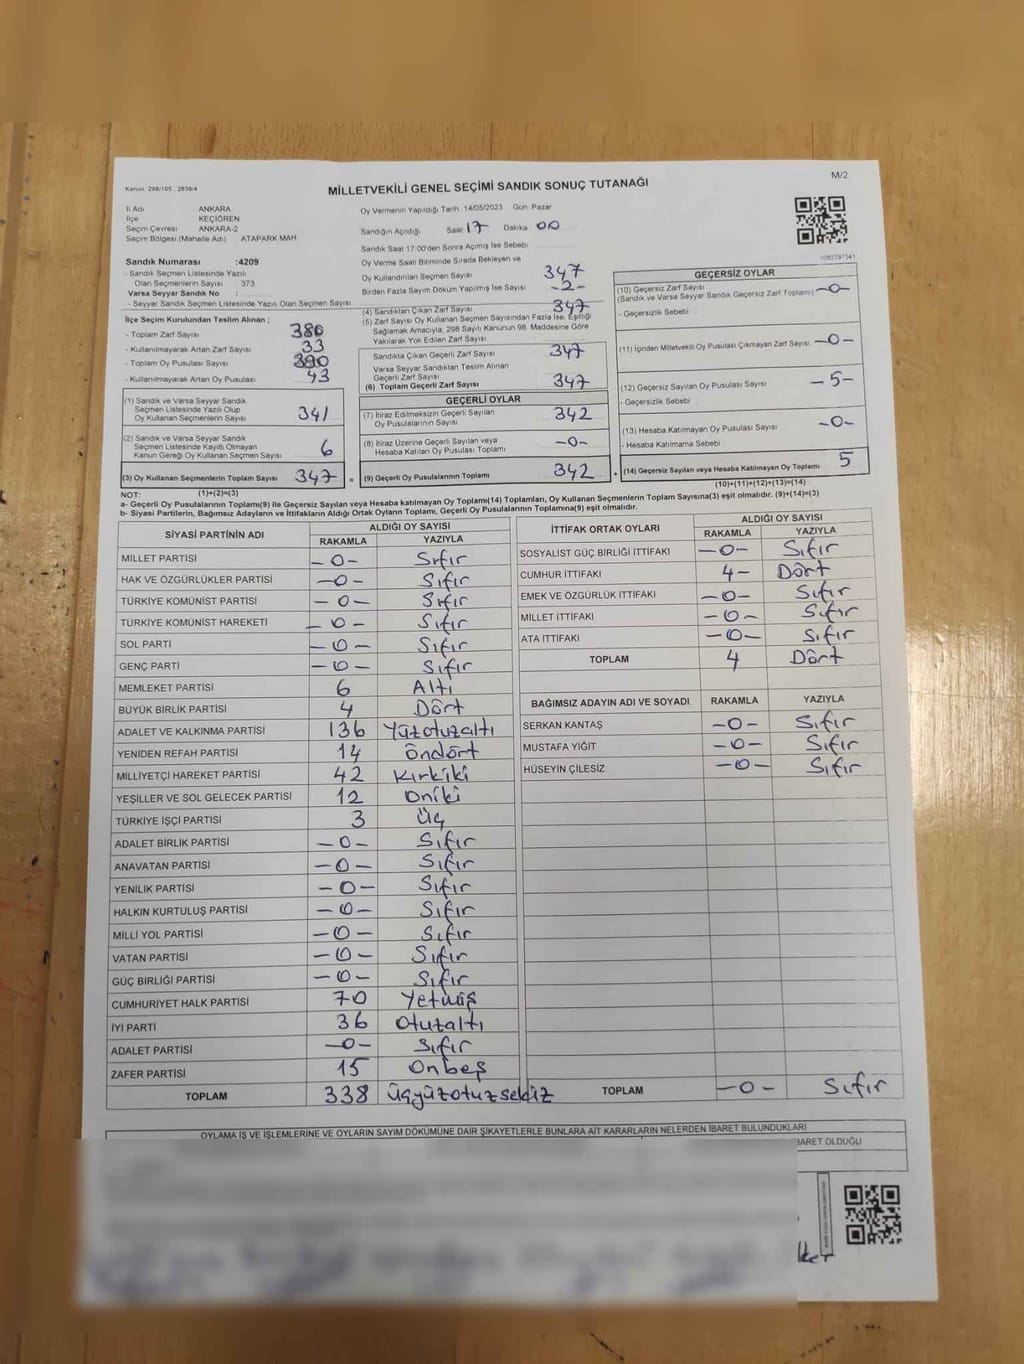 M/2
Kanun: 298/105, 2839/4
MİLLETVEKİLİ GENEL SEÇİMİ SANDIK SONUÇ TUTANAĞI
İl Adı ANKARA
İlçe KEÇİÖREN
Seçim Çevresi ANKARA-2
Seçim Bölgesi (Mahalle Adı) ATAPARK MAH
Sandık Numarası :4209
- Sandık Seçmen Listesinde Yazılı
Olan Seçmenlerin Sayısı 373
Varsa Seyyar Sandık No :
- Seyyar Sandık Seçmen Listesinde Yazılı Olan Seçmen Sayısı
İlçe Seçim Kurulundan Teslim Alınan ;
- Toplam Zarf Sayısı 380
- Kullanılmayarak Artan Zarf Sayısı 33
- Toplam Oy Pusulası Sayısı 390
- Kullanılmayarak Artan Oy Pusulası 43
(1) Sandık ve Varsa Seyyar Sandık
Seçmen Listesinde Yazılı Olup
Oy Kullanan Seçmenlerin Sayısı 341
(2) Sandık ve Varsa Seyyar Sandık
Seçmen Listesinde Kayıtlı Olmayan
Kanun Gereği Oy Kullanan Seçmen Sayısı 6
(3) Oy Kullanan Seçmenlerin Toplam Sayısı 347
(1)+(2)=(3)
Oy Vermenin Yapıldığı Tarih 14/05/2023 Gün Pazar
Sandığın Açıldığı Saat 17 Dakika 00
Sandık Saat 17:00'den Sonra Açılmış İse Sebebi
Oy Verme Saati Bitiminde Sırada Bekleyen ve
Oy Kullandırılan Seçmen Sayısı 347
Birden Fazla Sayım Döküm Yapılmış İse Sayısı -2-
(4) Sandıktan Çıkan Zarf Sayısı 347
(5) Zarf Sayısı Oy Kullanan Seçmen Sayısından Fazla İse, Eşitliği
Sağlamak Amacıyla; 298 Sayılı Kanunun 98. Maddesine Göre
Yakılarak Yok Edilen Zarf Sayısı
Sandıkta Çıkan Geçerli Zarf Sayısı 347
Varsa Seyyar Sandıktan Teslim Alınan
Geçerli Zarf Sayısı
(6) Toplam Geçerli Zarf Sayısı 347
GEÇERLİ OYLAR
(7) İtiraz Edilmeksizin Geçerli Sayılan
Oy Pusulalarının Sayısı 342
(8) İtiraz Üzerine Geçerli Sayılan veya
Hesaba Katılan Oy Pusulası Toplamı -0-
(9) Geçerli Oy Pusulalarının Toplamı 342
1083797541
GEÇERSİZ OYLAR
(10) Geçersiz Zarf Sayısı
(Sandık ve Varsa Seyyar Sandık Geçersiz Zarf Toplamı) -0-
- Geçersizlik Sebebi :
(11) İçinden Milletvekili Oy Pusulası Çıkmayan Zarf Sayısı -0-
(12) Geçersiz Sayılan Oy Pusulası Sayısı -5-
- Geçersizlik Sebebi :
(13) Hesaba Katılmayan Oy Pusulası Sayısı -0-
- Hesaba Katılmama Sebebi :
(14) Geçersiz Sayılan veya Hesaba Katılmayan Oy Toplamı 5
(10)+(11)+(12)+(13)=(14)
NOT:
a- Geçerli Oy Pusulalarının Toplamı(9) ile Geçersiz Sayılan veya Hesaba katılmayan Oy Toplamı(14) Toplamları, Oy Kullanan Seçmenlerin Toplam Sayısına(3) eşit olmalıdır. (9)+(14)=(3)
b- Siyasi Partilerin, Bağımsız Adayların ve İttifakların Aldığı Ortak Oyların Toplamı, Geçerli Oy Pusulalarının Toplamına(9) eşit olmalıdır.
SİYASİ PARTİNİN ADI ALDIĞI OY SAYISI
RAKAMLA YAZIYLA
MİLLET PARTİSİ -0- Sıfır
HAK VE ÖZGÜRLÜKLER PARTİSİ -0- Sıfır
TÜRKİYE KOMÜNİST PARTİSİ -0- Sıfır
TÜRKİYE KOMÜNİST HAREKETİ -0- Sıfır
SOL PARTİ -0- Sıfır
GENÇ PARTİ -0- Sıfır
MEMLEKET PARTİSİ 6 Altı
BÜYÜK BİRLİK PARTİSİ 4 Dört
ADALET VE KALKINMA PARTİSİ 136 Yüzotuzaltı
YENİDEN REFAH PARTİSİ 14 Ondört
MİLLİYETÇİ HAREKET PARTİSİ 42 Kırkiki
YEŞİLLER VE SOL GELECEK PARTİSİ 12 Oniki
TÜRKİYE İŞÇİ PARTİSİ 3 Üç
ADALET BİRLİK PARTİSİ -0- Sıfır
ANAVATAN PARTİSİ -0- Sıfır
YENİLİK PARTİSİ -0- Sıfır
HALKIN KURTULUŞ PARTİSİ -0- Sıfır
MİLLİ YOL PARTİSİ -0- Sıfır
VATAN PARTİSİ -0- Sıfır
GÜÇ BİRLİĞİ PARTİSİ -0- Sıfır
CUMHURİYET HALK PARTİSİ 70 Yetmiş
İYİ PARTİ 36 Otuzaltı
ADALET PARTİSİ -0- Sıfır
ZAFER PARTİSİ 15 Onbeş
TOPLAM 338 Üçyüzotuzsekiz
İTTİFAK ORTAK OYLARI ALDIĞI OY SAYISI
RAKAMLA YAZIYLA
SOSYALİST GÜÇ BİRLİĞİ İTTİFAKI -0- Sıfır
CUMHUR İTTİFAKI 4- Dört
EMEK VE ÖZGÜRLÜK İTTİFAKI -0- Sıfır
MİLLET İTTİFAKI -0- Sıfır
ATA İTTİFAKI -0- Sıfır
TOPLAM 4 Dört
BAĞIMSIZ ADAYIN ADI VE SOYADI RAKAMLA YAZIYLA
SERKAN KANTAŞ -0- Sıfır
MUSTAFA YİĞİT -0- Sıfır
HÜSEYİN ÇİLESİZ -0- Sıfır
TOPLAM -0- Sıfır
OYLAMA İŞ VE İŞLEMLERİNE VE OYLARIN SAYIM DÖKÜMÜNE DAİR ŞİKAYETLERLE BUNLARA AİT KARARLARIN NELERDEN İBARET BULUNDUKLARI
İBARET OLDUĞU